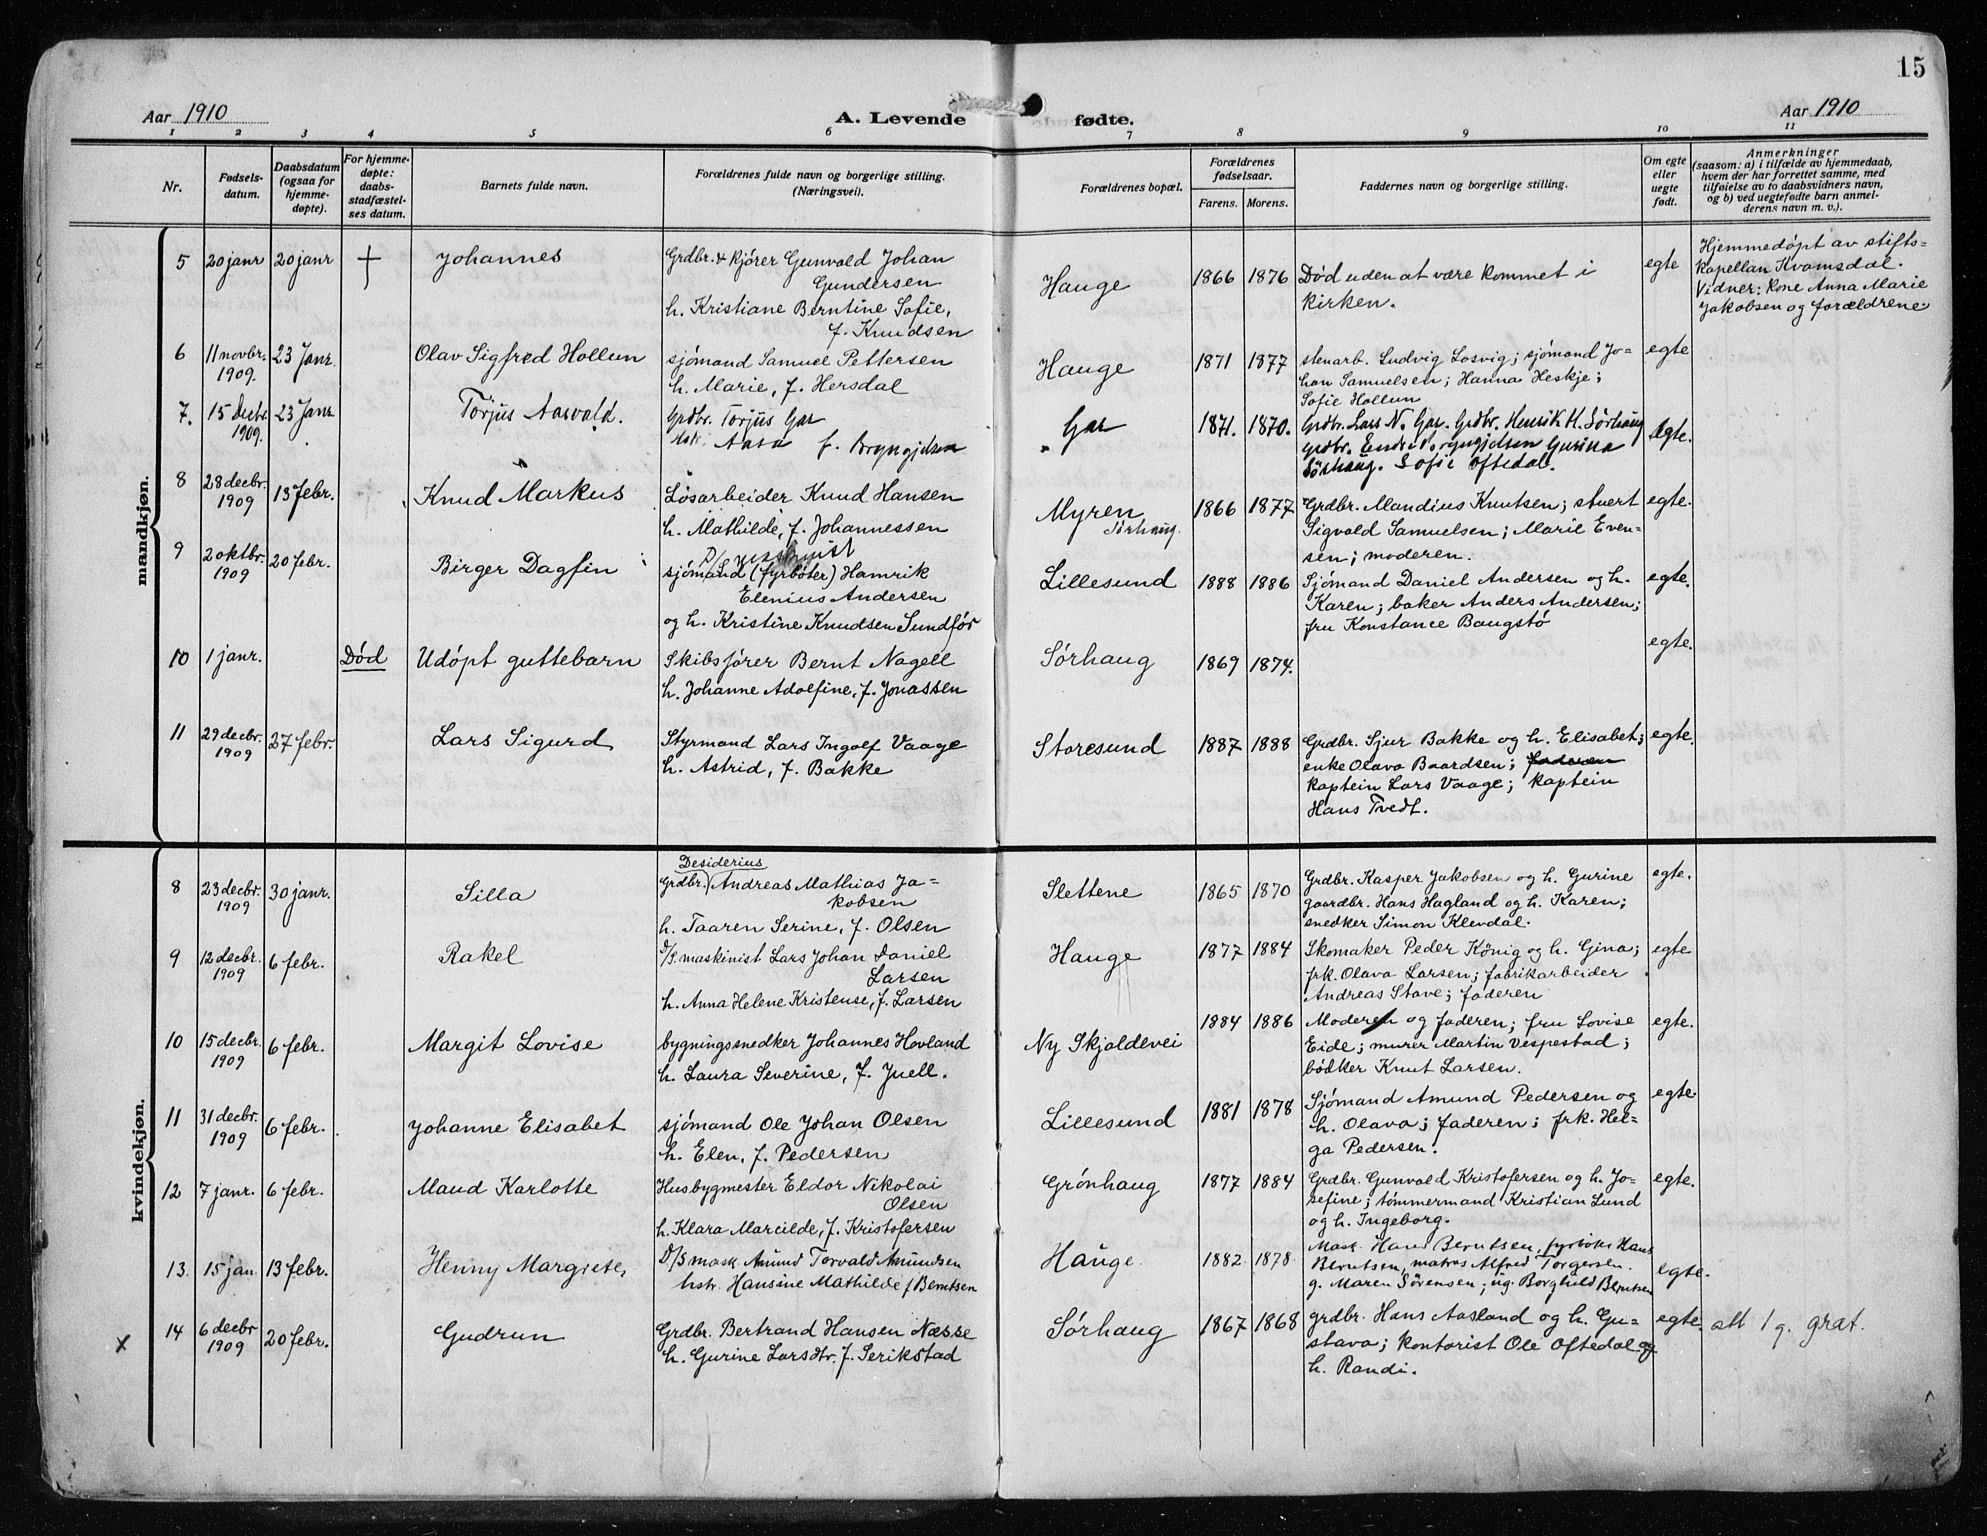 15
Aar 1910
A. Levende fødte.
Aar 1910
1 2 3 4 5 6 7 8 9 10 11
Nr.
Fødsels-
datum.
Daabsdatum
(ogsaa for
hjemme-
døpte).
For hjemme-
døpte:
daabs-
stadfæstel-
ses datum.
Barnets fulde navn.
Forældrenes fulde navn og borgerlige stilling.
(Næringsvei).
Forældrenes bopæl.
Forældrenes
fødselsaar.
Farens. Morens.
Faddernes navn og borgerlige stilling.
Om egte
eller
uegte
født.
Anmerkninger
(saasom: a) i tilfælde av hjemmedaab,
hvem der har forrettet samme, med
tilføielse av to daabsvidners navn,
og b) ved uegtefødte barn anmel-
derens navn m. v.).
mandkjøn.
5 20 janr 20 janr + Johannes
Grdbr. & kjører Gunvald Johan
Gundersen
h. Kristiane Berntine Sofie,
f. Knudsen
Hauge 1866 1876
Død uden at være kommet i
kirken.
egte
Hjemmedøpt av stifts-
kapellan Kvamsdal.
Vidner: Kone Anna Marie
Jakobsen og forældrene.
6 11 novbr. 1909. 23 Janr. Olav Sigfred Hollun
sjømand Samuel Pettersen
h. Marie, f. Hersdal
Hauge 1871 1877
stenarb. Ludvig Losvig; sjømand Jo-
han Samuelsen; Hanna Heskje;
Sofie Hollun
egte
7. 15 decbr 1909. 23 Janr Torjus Aasvald.
Grdbr. Torjus Gar
Aasa f. Bryngjelsen
Gar 1871. 1870.
Grdbr. Lars N. Gar. Grdbr. Henrik H. Sørhaug
Grdbr. Endre Bryngjelsen Gurina
Sørhaug. Sofie Oftedal.
egte.
8 28 decbr. 1909 13 febr. Knud Markus
Løsarbeider Knud Hansen
h. Mathilde, f. Johannessen
Myren
Sørhaug.
1866 1877
Grdbr. Mandius Knutsen; stuert
Sigvald Samuelsen; Marie Even-
sen; moderen.
egte.
9 2 oktbr. 1909 20 febr. Birger Dagfin
sjømand (fyrbøter) Hamrik
Elenius Andersen
og h. Kristine Knudsen Sundfør
Lillesund 1888 1886
Sjømand Daniel Andersen og h.
Karen; baker Anders Andersen;
fru Konstance Baugstø
egte.
10 1 janr. Død Udøpt guttebarn
Skibsfører Bernt Nagell
h. Johanne Adolfine, f. Jonassen
Sørhaug 1869 1874.
egte.
11 29 decbr. 1909 27 febr. Lars Sigurd
Styrmand Lars Ingolf Vaage
h. Astrid, f. Bakke
Storesund 1887 1888
Grdbr. Sjur Bakke og h. Elisabet;
enke Olava Baardsen; faderen
kaptein Lars Vaage; kaptein
Hans Tvedt.
egte.
kvindekjøn.
8 23 decbr. 1909 30 janr. Silla
Desiderius
Grdbr. Andreas Mathias Ja-
kobsen
h. Taaren Serine, f. Olsen
Slettene 1865 1870
Grdbr. Kasper Jakobsen og h. Gurine
gaardbr. Hans Hagland og h. Karen;
snedker Simon Klevdal.
egte.
9 12 decbr. 1909 6 febr. Rakel
D/S maskinist Lars Johan Daniel
Larsen
h. Anna Helene Kristense, f. Larsen
Hauge 1877 1884
Skomaker Peder König og h. Gina;
frk. Olava Larsen; fabrikarbeider
Andreas Stave; faderen
egte
10 15 decbr. 1909 6 febr. Margit Lovise
bygningssnedker Johannes Hovland
h. Laura Severine, f. Juell.
Ny Skjoldevei 1884 1886
Moderen og faderen; fru Lovise
Eide; murer Martin Vespestad;
bødker Knut Larsen.
egte.
11 31 decbr. 1909 6 febr. Johanne Elisabet
sjømand Ole Johan Olsen
h. Elen, f. Pedersen
Lillesund 1881 1878
Sjømand Amund Pedersen og
h. Olava; faderen; frk. Hel-
ga Pedersen.
egte
12 7 janr. 6 febr. Maud Karlotte
Husbygmester Eldor Nikolai
Olsen
h. Klara Marcilde, f. Kristofersen
Grønhaug 1877 1884
Grdbr. Gunvald Kristofersen og h. Jo-
sefine; tømmermand Kristian Lund
og h. Ingeborg.
egte.
13. 15 jan. 13 febr. Henny Margrete,
D/S mask. Amund Torvald Amundsen
hstr. Hansine Mathilde f Berntsen
Hauge. 1882. 1878.
Mask. Hans Berntsen, fyrbøter Hans
Berntsen, matros Alfred Torgersen.
g. Maren Sörensen; ug. Borghild Berntsen
egte.
x 14 6 decbr 1909 20 febr. Gudrun
Grdbr. Bertrand Hansen Næsse
h. Gurine Larsdtr. f. Serikstad
Sørhaug 1867 1868
grdbr. Hans Aasland og h. Gu-
stava; kontorist Ole Oftedal og
h. Randi.
egte. att 1 g. grat.